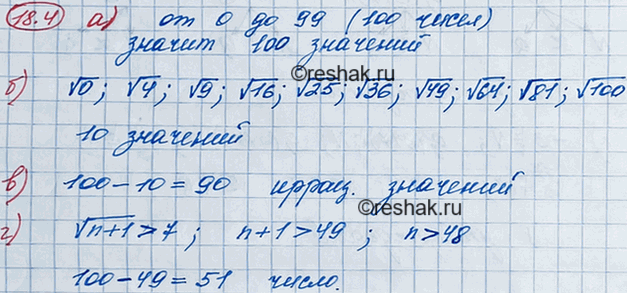 18.4 а) от 0 до 99 (100 чисел)
значит 100 значений
©reshak.ru
б) √0; √4; √9; √16; √25; √36; √49; √64; √81; √100
10 значений
в) 100-10=90 иррац. значений
©reshak.ru
г) √n+1>7; n+1>49; n>48
100-49=51 число.